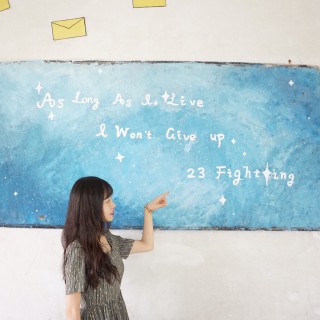 As Long As I Live
I Won't Give up
23 Fighting